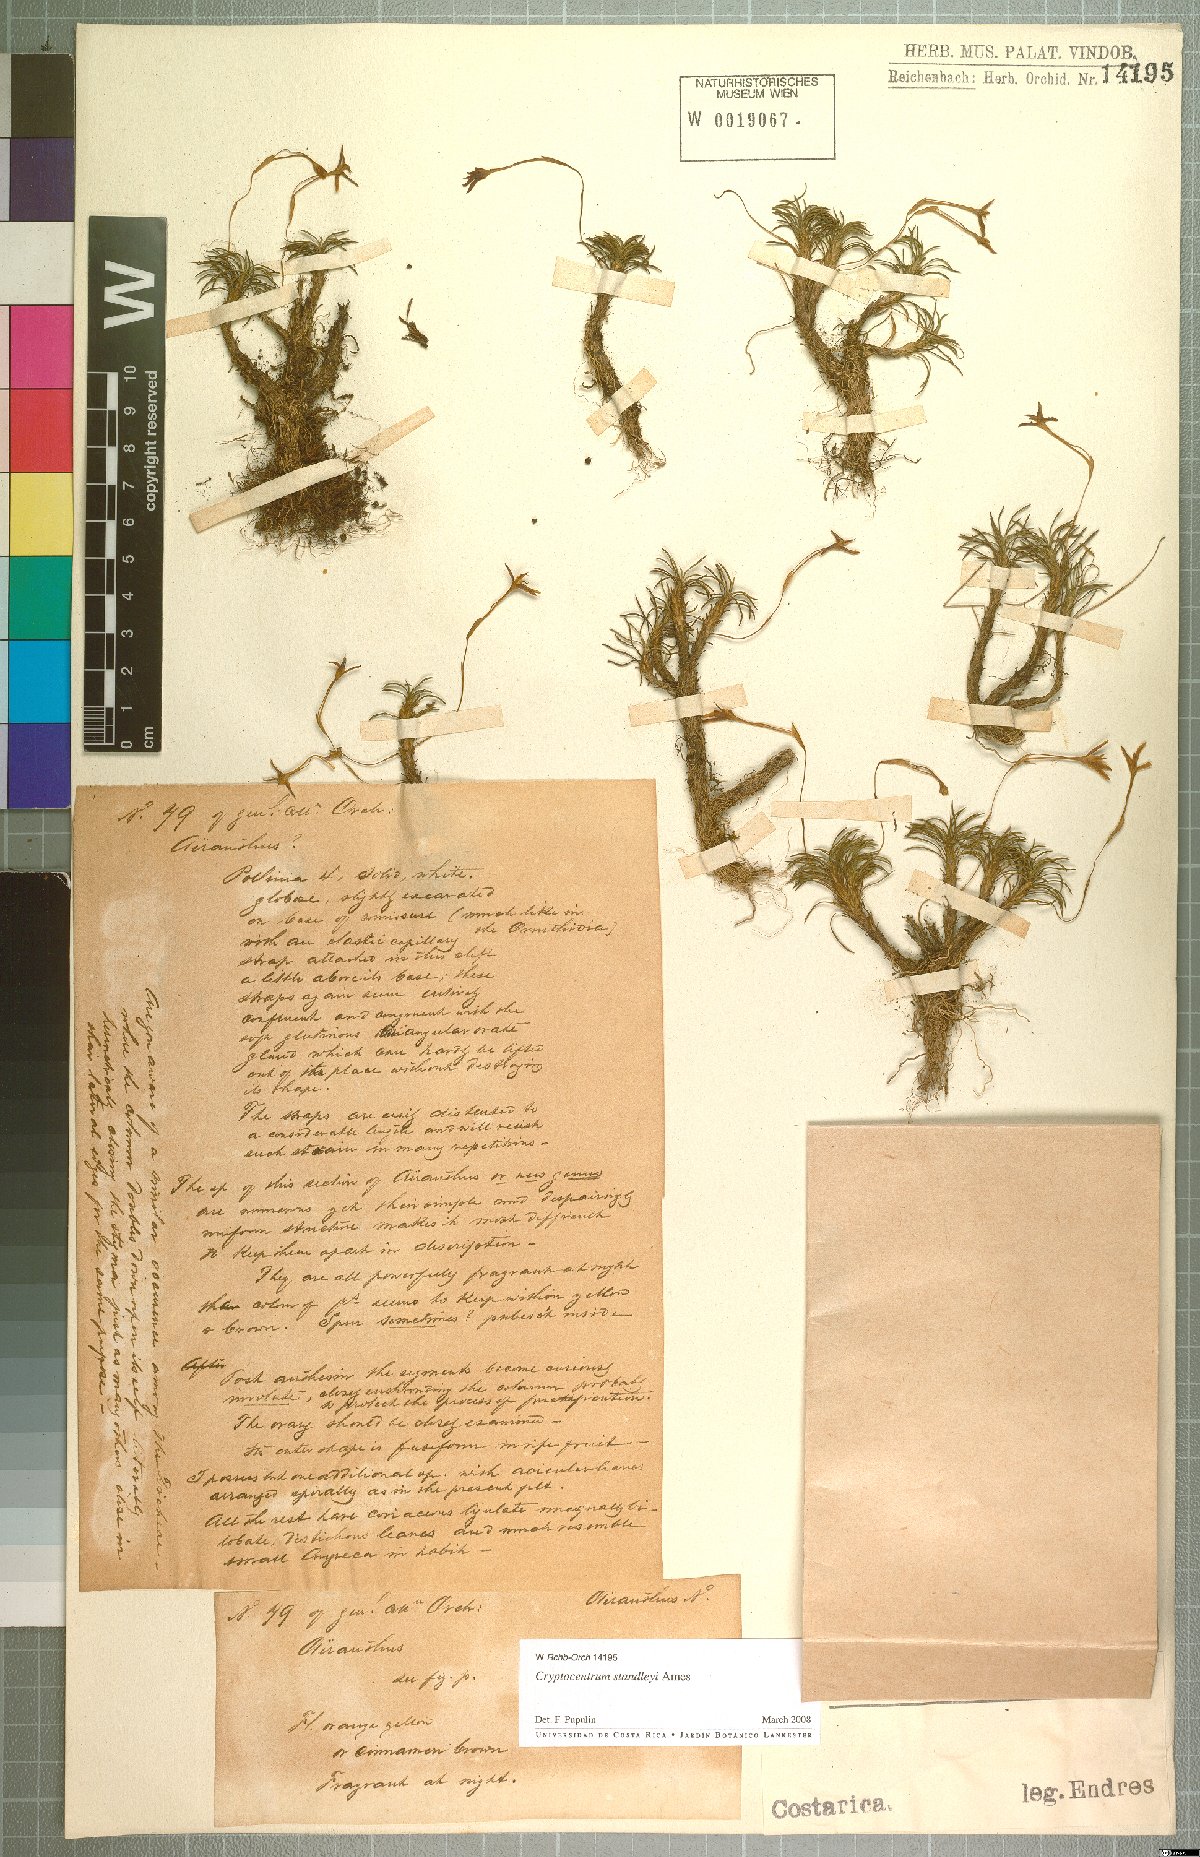 HERB. MUS. PALAT. VINDOB.
Reichenbach: Herb. Orchid. Nr. 14195
NATURHISTORISCHES
MUSEUM WIEN
W 0019067
W
copyright reserved
0 1 2 3 4 5 6 7 8 9 10
cm
No. 79 of gen! Orch:
Aëranthus?
Pollinia 4, solid, white.
globose, slightly excavated
on base of (much like in
the Ornithidia)
with an elastic capillary
strap attached in this cleft
a little above its base; these
straps again seem entirely
confluent and congruent with the
soft glutinous triangular ovate
gland which can hardly be lifted
out of its place without destroying
its shape.
The straps are easily distended to
a considerable length and will resist
such strain in many repetitions -
The sp of this section of Aëranthus or new genus
are numerous yet their simple and despairingly
uniform structure makes it most difficult
to keep them apart in description -
They are all powerfully fragrant at night
the colour of seems to keep within yellow
& brown. Spur sometimes? pubesct inside
After
Post anthesin the segments become curiously
involute, closely enshrouding the column probably
to protect the process of
The ovary should be closely examined -
its outer shape is fusiform in ripe fruit -
I possess but one additional sp. with acicular leaves
arranged spirally as in the present plt.
All the rest have coriaceous ligulate unequally bi-
lobate, distichous leaves and much resemble
small Angreca in habit -
Am I on aware of a similar occurrence among the
where the column doubles down upon its self literally
hermetically closing the stigma just as many others close in
their lateral edges for the same purpose -
No 79 of gen! Orch:
Aëranthus No.
Aëranthus
see fig. p.
Fl orange yellow
or cinnamon brown
Fragrant at night.
W Rchb-Orch 14195
Cryptocentrum standleyi Ames
Det. F. Pupulin March 2008
UNIVERSIDAD DE COSTA RICA • JARDÍN BOTÁNICO LANKESTER
Costarica.
leg. Endres